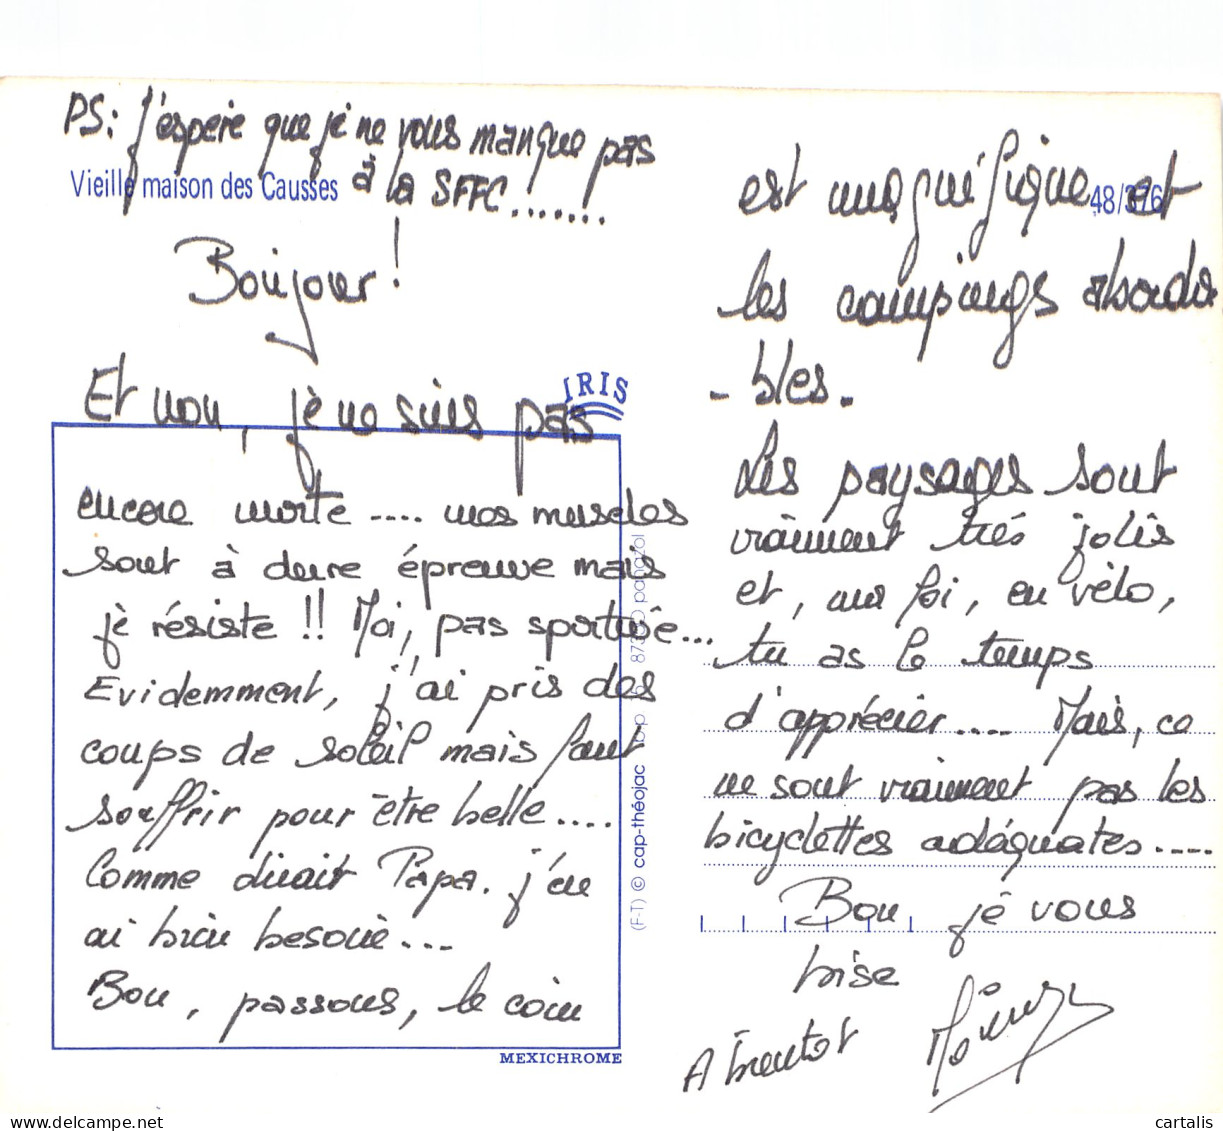 PS: J'espère que je ne vous manque pas
à la SFFC.......
Vieille maison des Causses
Bonjour!
Et non, je ne suis pas
encore morte .... mes muscles
sont à dure épreuve mais
je résiste !! Moi, pas sportive...
Evidemment, j'ai pris des
coups de soleil mais faut
souffrir pour être belle....
Comme dirait Papa. j'en
ai bien besoin...
Bon, passons, le coin
IRIS
MEXICHROME
(F-T) © cap-théojac panazol
48/376
est magnifique et
les campings aborda
- bles.
Les paysages sont
vraiment très jolis
et, ma foi, en vélo,
tu as le temps
d'apprécier.... Mais, ce
ne sont vraiment pas les
bicyclettes adéquates....
Bon je vous
bise
A bientot
cartalis